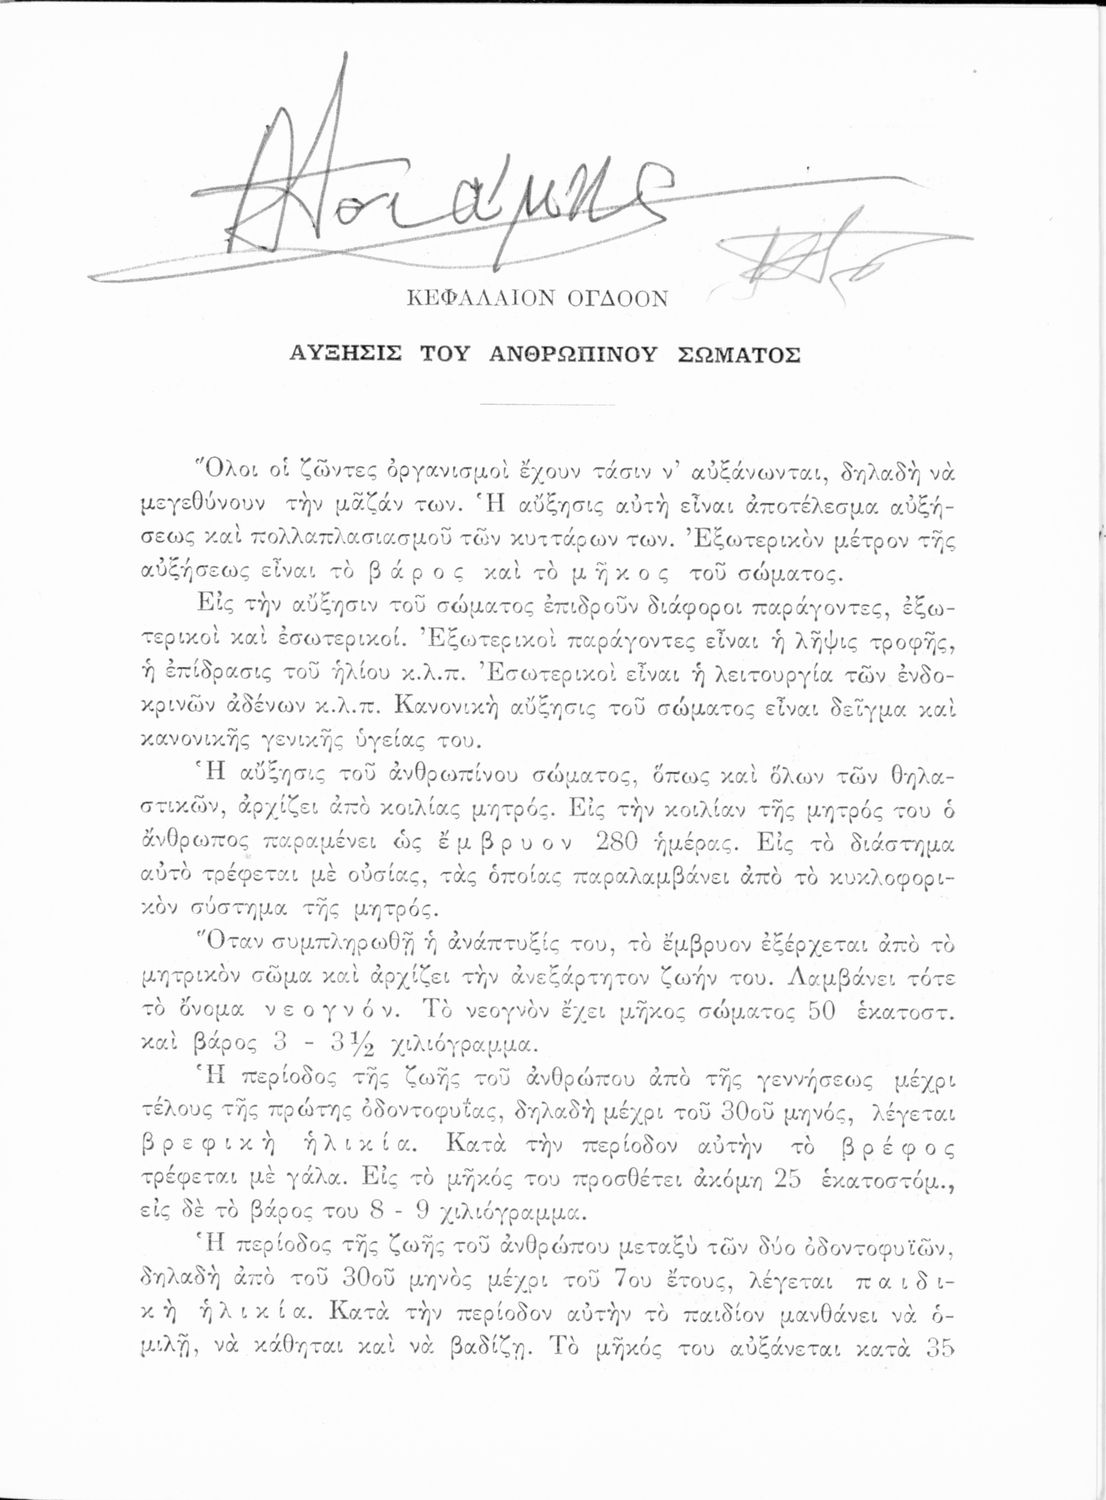 ΚΕΦΑΛΑΙΟΝ ΟΓΔΟΟΝ
ΑΥΞΗΣΙΣ ΤΟΥ ΑΝΘΡΩΠΙΝΟΥ ΣΩΜΑΤΟΣ
Ὅλοι οἱ ζῶντες ὀργανισμοὶ ἔχουν τάσιν ν’ αὐξάνωνται, δηλαδὴ νὰ
μεγεθύνουν τὴν μᾶζάν των. Ἡ αὔξησις αὐτὴ εἶναι ἀποτέλεσμα αὐξή-
σεως καὶ πολλαπλασιασμοῦ τῶν κυττάρων των. Ἐξωτερικὸν μέτρον τῆς
αὐξήσεως εἶναι τὸ βάρος καὶ τὸ μῆκος τοῦ σώματος.
Εἰς τὴν αὔξησιν τοῦ σώματος ἐπιδροῦν διάφοροι παράγοντες, ἐξω-
τερικοὶ καὶ ἐσωτερικοί. Ἐξωτερικοὶ παράγοντες εἶναι ἡ λῆψις τροφῆς,
ἡ ἐπίδρασις τοῦ ἡλίου κ.λ.π. Ἐσωτερικοὶ εἶναι ἡ λειτουργία τῶν ἐνδο-
κρινῶν ἀδένων κ.λ.π. Κανονικὴ αὔξησις τοῦ σώματος εἶναι δεῖγμα καὶ
κανονικῆς γενικῆς ὑγείας του.
Ἡ αὔξησις τοῦ ἀνθρωπίνου σώματος, ὅπως καὶ ὅλων τῶν θηλα-
στικῶν, ἀρχίζει ἀπὸ κοιλίας μητρός. Εἰς τὴν κοιλίαν τῆς μητρός του ὁ
ἄνθρωπος παραμένει ὡς ἔμβρυον 280 ἡμέρας. Εἰς τὸ διάστημα
αὐτὸ τρέφεται μὲ οὐσίας, τὰς ὁποίας παραλαμβάνει ἀπὸ τὸ κυκλοφορι-
κὸν σύστημα τῆς μητρός.
Ὅταν συμπληρωθῇ ἡ ἀνάπτυξίς του, τὸ ἔμβρυον ἐξέρχεται ἀπὸ τὸ
μητρικὸν σῶμα καὶ ἀρχίζει τὴν ἀνεξάρτητον ζωήν του. Λαμβάνει τότε
τὸ ὄνομα νεογνόν. Τὸ νεογνὸν ἔχει μῆκος σώματος 50 ἑκατοστ.
καὶ βάρος 3 - 3½ χιλιόγραμμα.
Ἡ περίοδος τῆς ζωῆς τοῦ ἀνθρώπου ἀπὸ τῆς γεννήσεως μέχρι
τέλους τῆς πρώτης ὀδοντοφυΐας, δηλαδὴ μέχρι τοῦ 30οῦ μηνός, λέγεται
βρεφικὴ ἡλικία. Κατὰ τὴν περίοδον αὐτὴν τὸ βρέφος
τρέφεται μὲ γάλα. Εἰς τὸ μῆκός του προσθέτει ἀκόμη 25 ἑκατοστόμ.,
εἰς δὲ τὸ βάρος του 8 - 9 χιλιόγραμμα.
Ἡ περίοδος τῆς ζωῆς τοῦ ἀνθρώπου μεταξὺ τῶν δύο ὀδοντοφυϊῶν,
δηλαδὴ ἀπὸ τοῦ 30οῦ μηνὸς μέχρι τοῦ 7ου ἔτους, λέγεται παιδι-
κὴ ἡλικία. Κατὰ τὴν περίοδον αὐτὴν τὸ παιδίον μανθάνει νὰ ὁ-
μιλῇ, νὰ κάθηται καὶ νὰ βαδίζῃ. Τὸ μῆκός του αὐξάνεται κατὰ 35